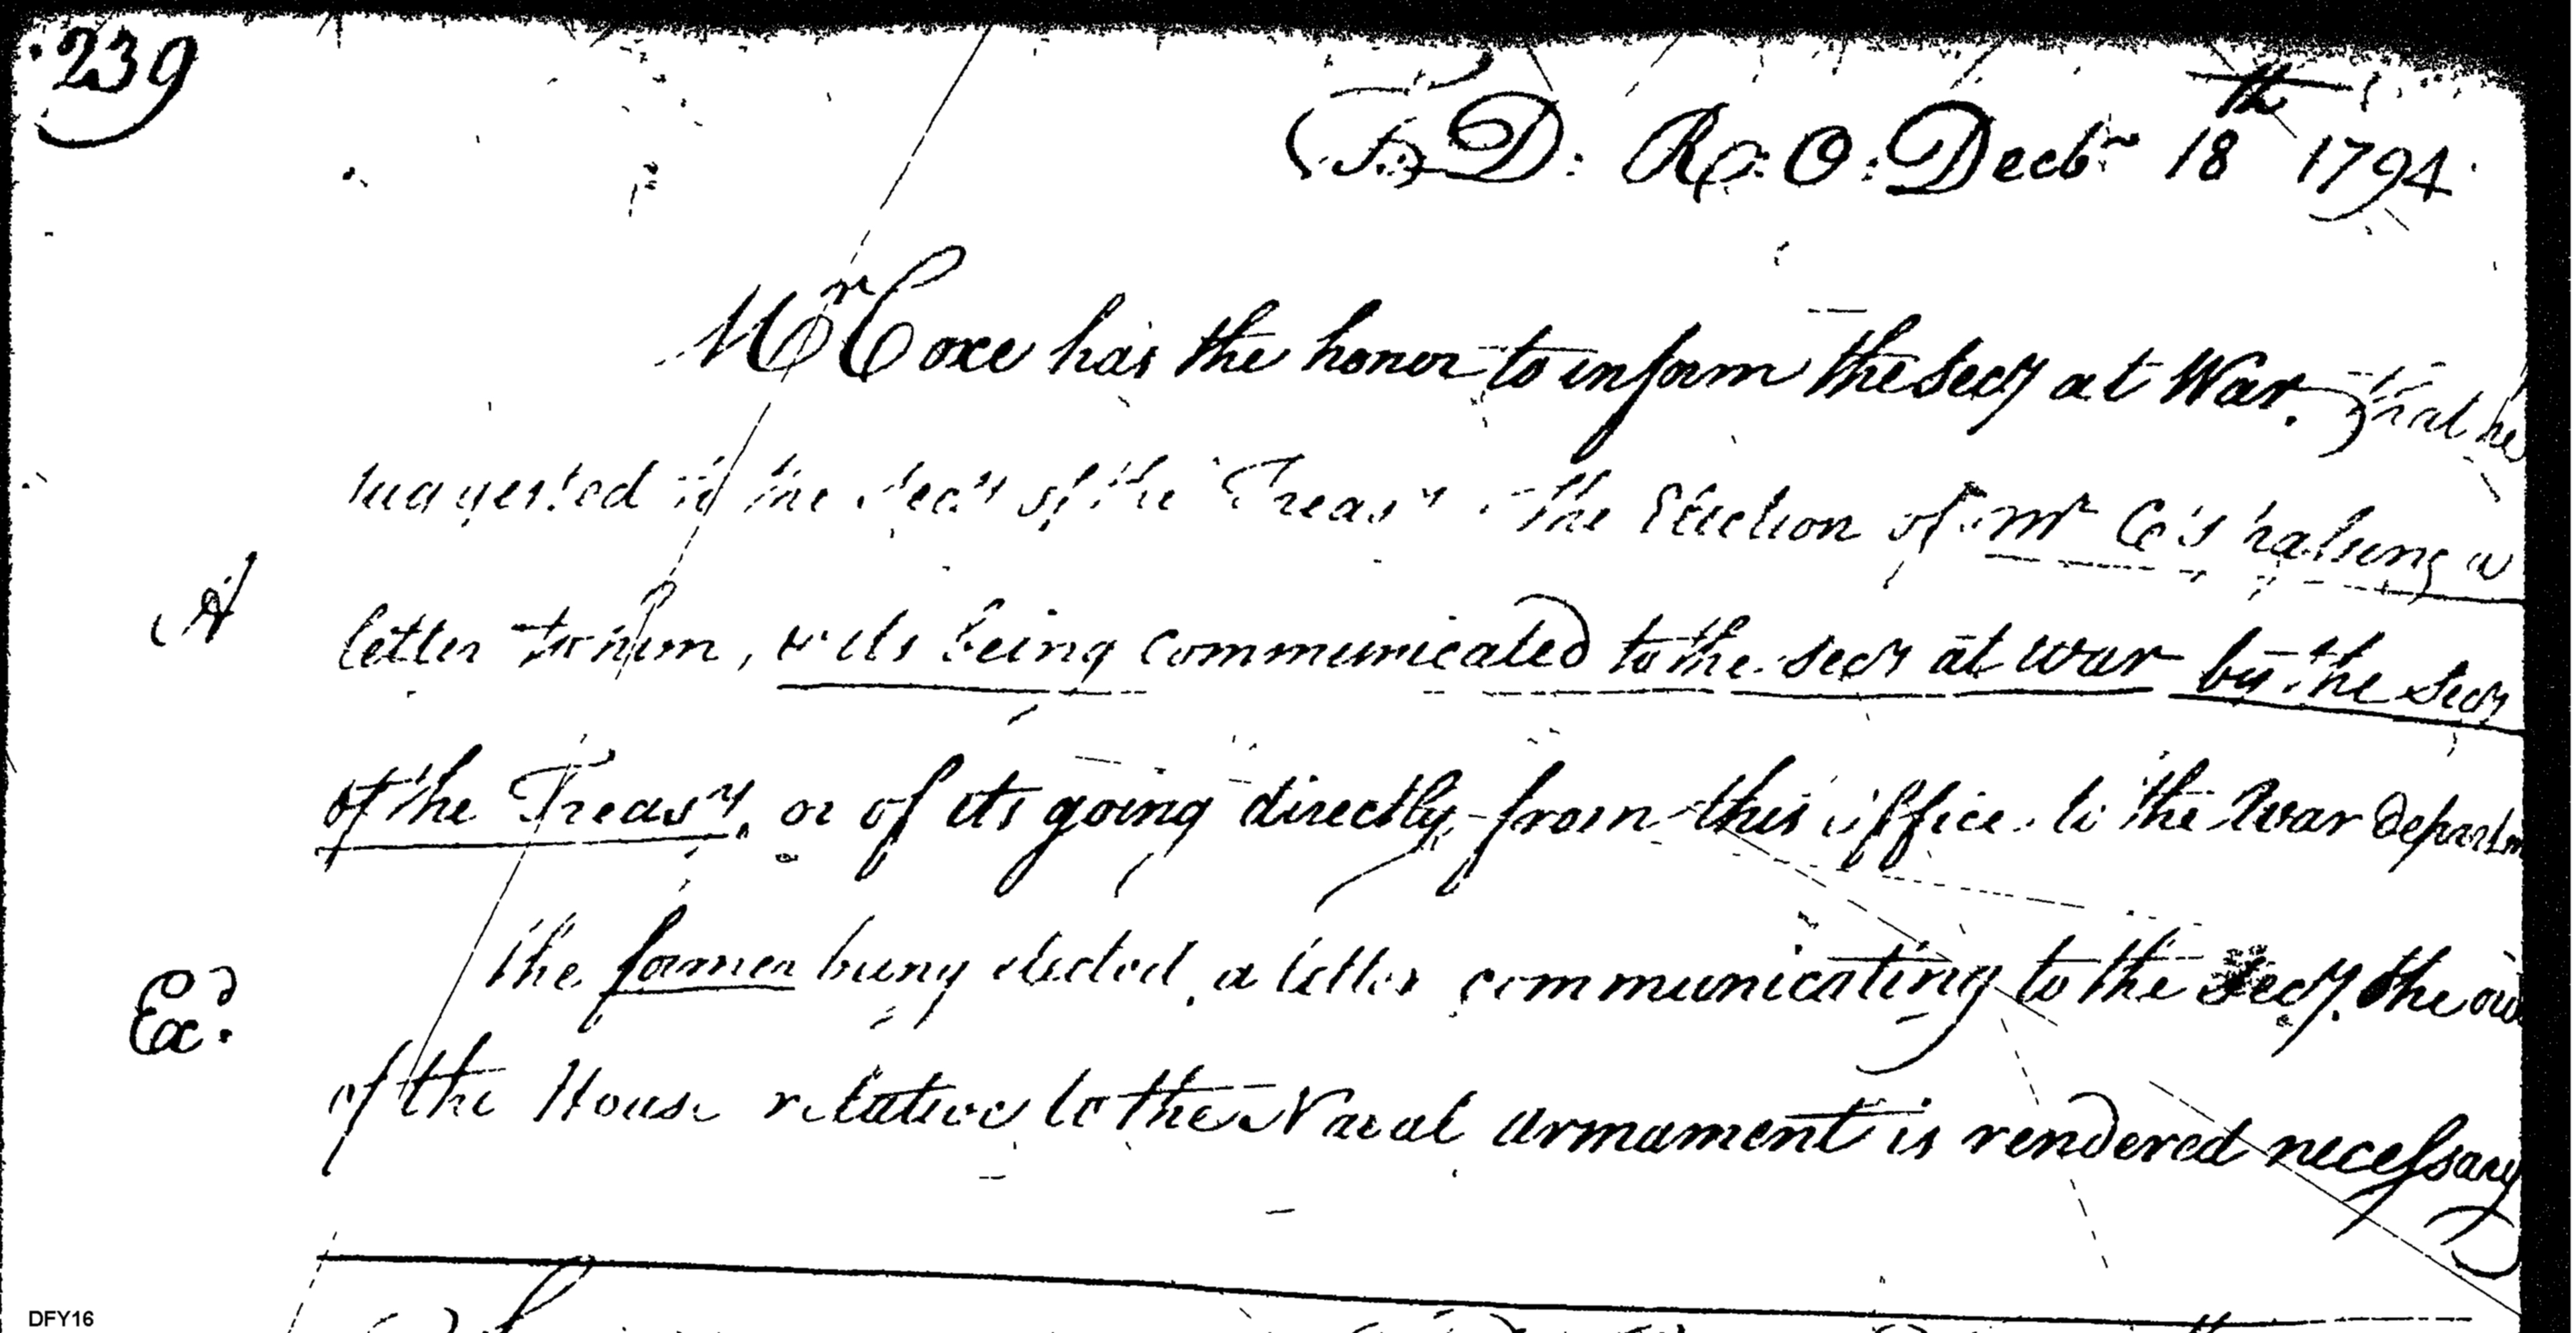 239
T: D: R: O: Decbr 18th 1794
Mr Coxe has the honor to inform the Secy at War. that he
suggested to the Secy of the Treasy the Election of Mr C's having a
letter to him, & its being communicated to the Secy at War by the Secy
A
of the Treasy, or of its going directly from this office to the War departm
The former being elected, a letter communicating to the Secy. the
Exd.
of the House relative to the Naval armament is rendered necessary
DFY16